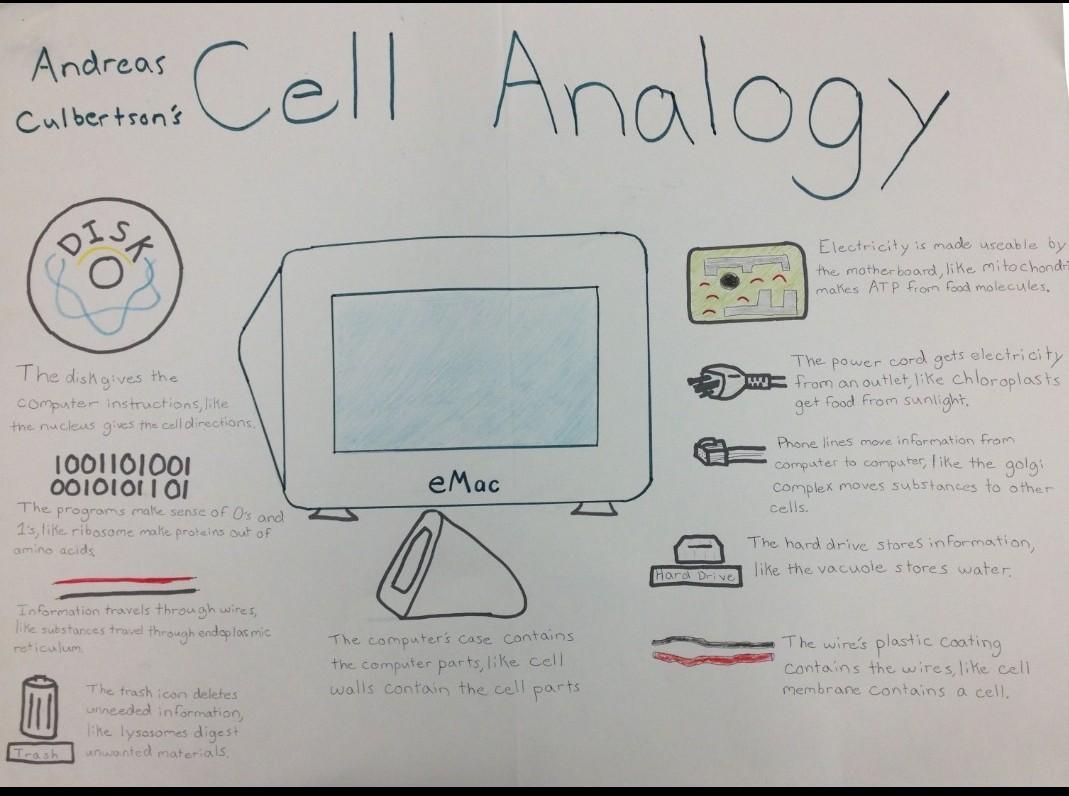 Andreas
Culbertson's
Cell Analogy
DISK
The disk gives the
computer instructions, like
the nucleus gives the cell directions.
1001101001
0010101101
The programs make sense of 0's and
1's, like ribosome make proteins out of
amino acids
Information travels through wires,
like substances travel through endoplasmic
reticulum.
Trash
The trash icon deletes
unneeded information,
like lysosomes digest
unwanted materials.
eMac
The computer's case contains
the computer parts, like cell
walls contain the cell parts
Electricity is made useable by
the motherboard, like mitochondri
makes ATP from food molecules.
The power cord gets electricity
from an outlet, like chloroplasts
get food from sunlight.
Phone lines move information from
computer to computer, like the golgi
complex moves substances to other
cells.
Hard Drive
The hard drive stores information,
like the vacuole stores water.
The wire's plastic coating
contains the wires, like cell
membrane contains a cell.